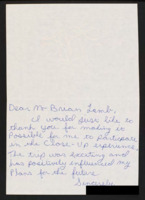 Dear Mr Brian Lamb,
I would just like to
thank you for making it
possible for me to participate
in the Close-Up experience.
The trip was exciting and
has positively influenced my
plans for the future.
Sincerely